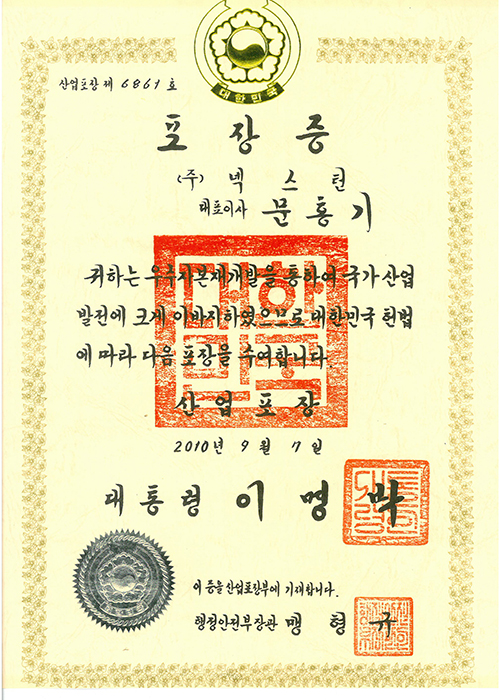 대한민국
산업포장 제 6861 호
포장증
(주) 넥스턴
대표이사 문홍기
귀하는 우수자본재개발을 통하여 국가 산업
발전에 크게 이바지하였으므로 대한민국 헌법
에 따라 다음 포장을 수여합니다.
산업포장
2010년 9월 7일
대통령 이명박
이 증을 산업포장부에 기재합니다.
행정안전부장관 맹형규